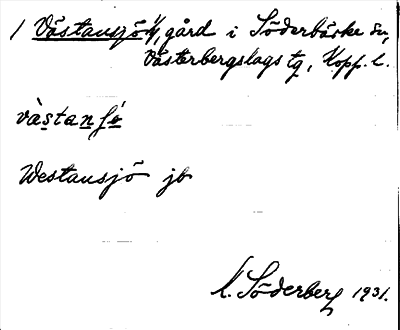 / Västansjö 1/4, gård i Söderbärke sn,
Västerbergslags tg, Kopp. l.
västanʃö
Westansjö jb
L. Söderberg 1931.